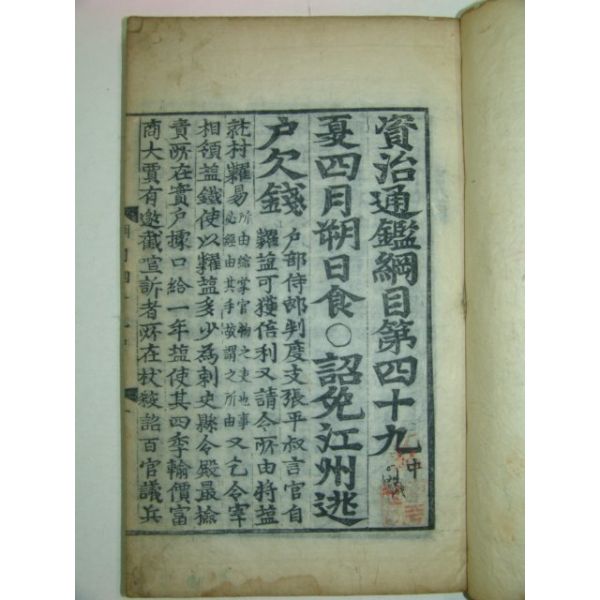 資治通鑑綱目第四十九 中
夏四月朔日食○詔免江州逃
户欠錢 户部侍郎判度支張平叔言官自
糶鹽可獲倍利又請令所由將鹽
就村糶易 所由綰掌官物之吏也事
必經由其手故謂之所由 又乞令宰
相領鹽鐵使以糶鹽多少為刺史縣令殿最檢
責所在實户據口給一年鹽使其四季輸價富
商大賈有邀截喧訴者所在杖殺詔百官議兵